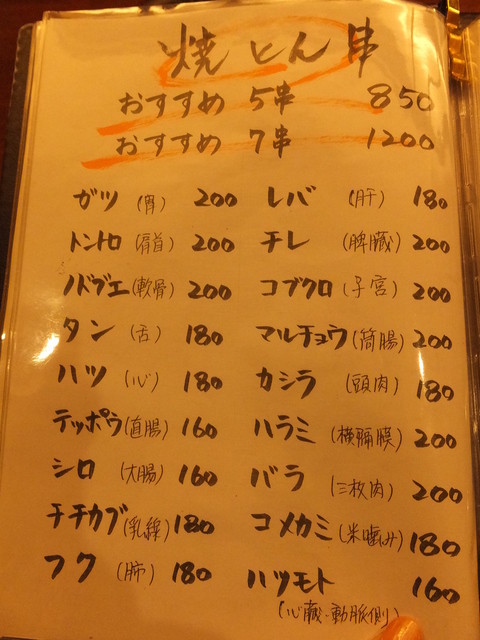 焼とん串
おすすめ 5串 850
おすすめ 7串 1200
ガツ (胃) 200 レバ (肝) 180
トントロ (肩首) 200 チレ (脾臓) 200
ノドブエ (軟骨) 200 コブクロ (子宮) 200
タン (舌) 180 マルチョウ (筒腸) 200
ハツ (心) 180 カシラ (頭肉) 180
テッポウ (直腸) 160 ハラミ (横隔膜) 200
シロ (大腸) 160 バラ (三枚肉) 200
チチカブ (乳線) 180 コメカミ (米噛み) 180
フク (肺) 180 ハツモト 160
(心臓・動脈側)